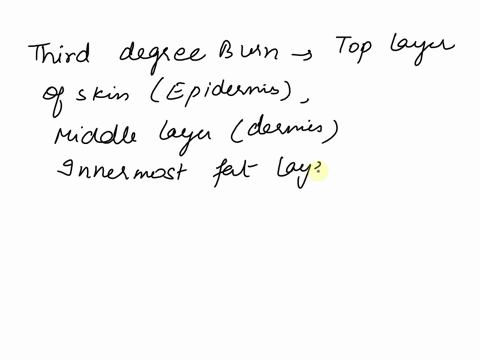 Third degree Burn → Top layer
of skin (Epidermis),
Middle layer (dermis)
Innermost fat lay